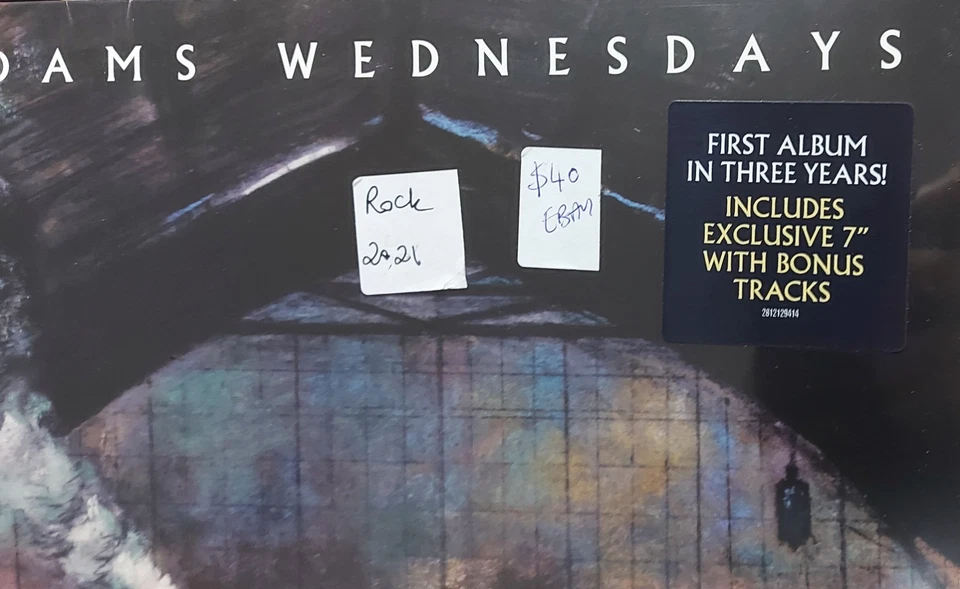 DAMS WEDNESDAYS
Rock
$40
FIRST ALBUM
IN THREE YEARS!
INCLUDES
EXCLUSIVE 7”
WITH BONUS
TRACKS
2812129414